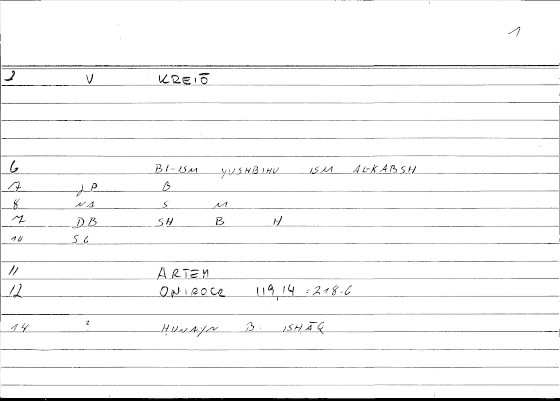 1
2 V KREIŌ
6 BI-ISM YUSHBIHU ISM AL-KABSH
7 JP B
8 NS S M
9 DB SH B H
10 SG
11 ARTEM
12 ONIROCR 119,14 = 218.6
14 ? HUNAYN B. ISHĀQ